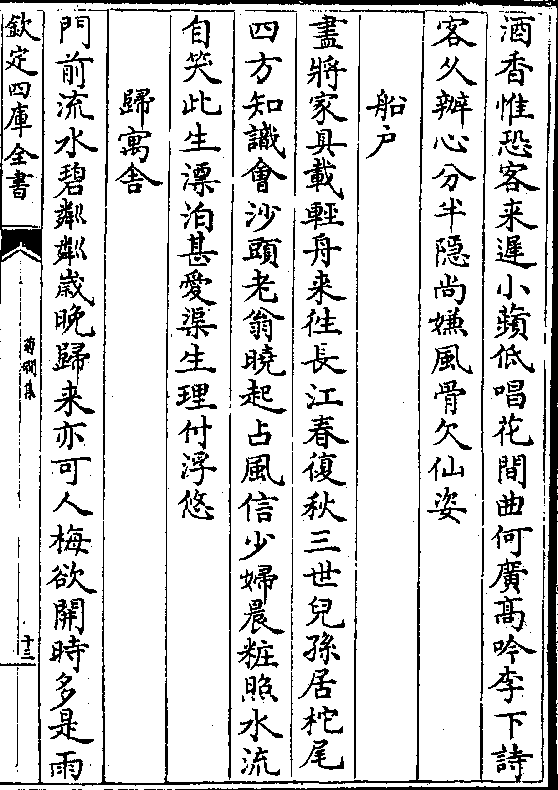 酒香惟恐客来遲小蘋低唱花間曲何廣髙吟李下詩
客久辦心分半隠尚嫌風骨欠仙姿
船户
盡將家具載輕舟来徃長江春復秋三世兒孫居柁尾
四方知識會沙頭老翁曉起占風信少婦晨粧照水流
自笑此生漂泊甚愛渠生理付浮悠
歸寓舎
門前流水碧粼粼歳晩歸来亦可人梅欲開時多是雨
欽定四庫全書
菊磵集
十三